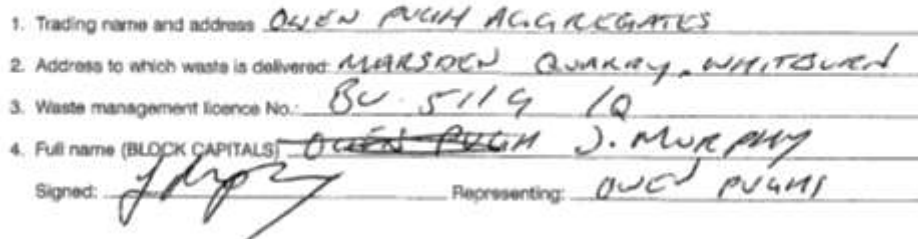 1. Trading name and address OWEN PUGH AGGREGATES
2. Address to which waste is delivered: MARSDEN QUARRY, WHITBURN
3. Waste management licence No.: BU 5119 IQ
4. Full name (BLOCK CAPITALS) OWEN PUGH J. MURPHY
Signed: J Murphy Representing: OWEN PUGHS